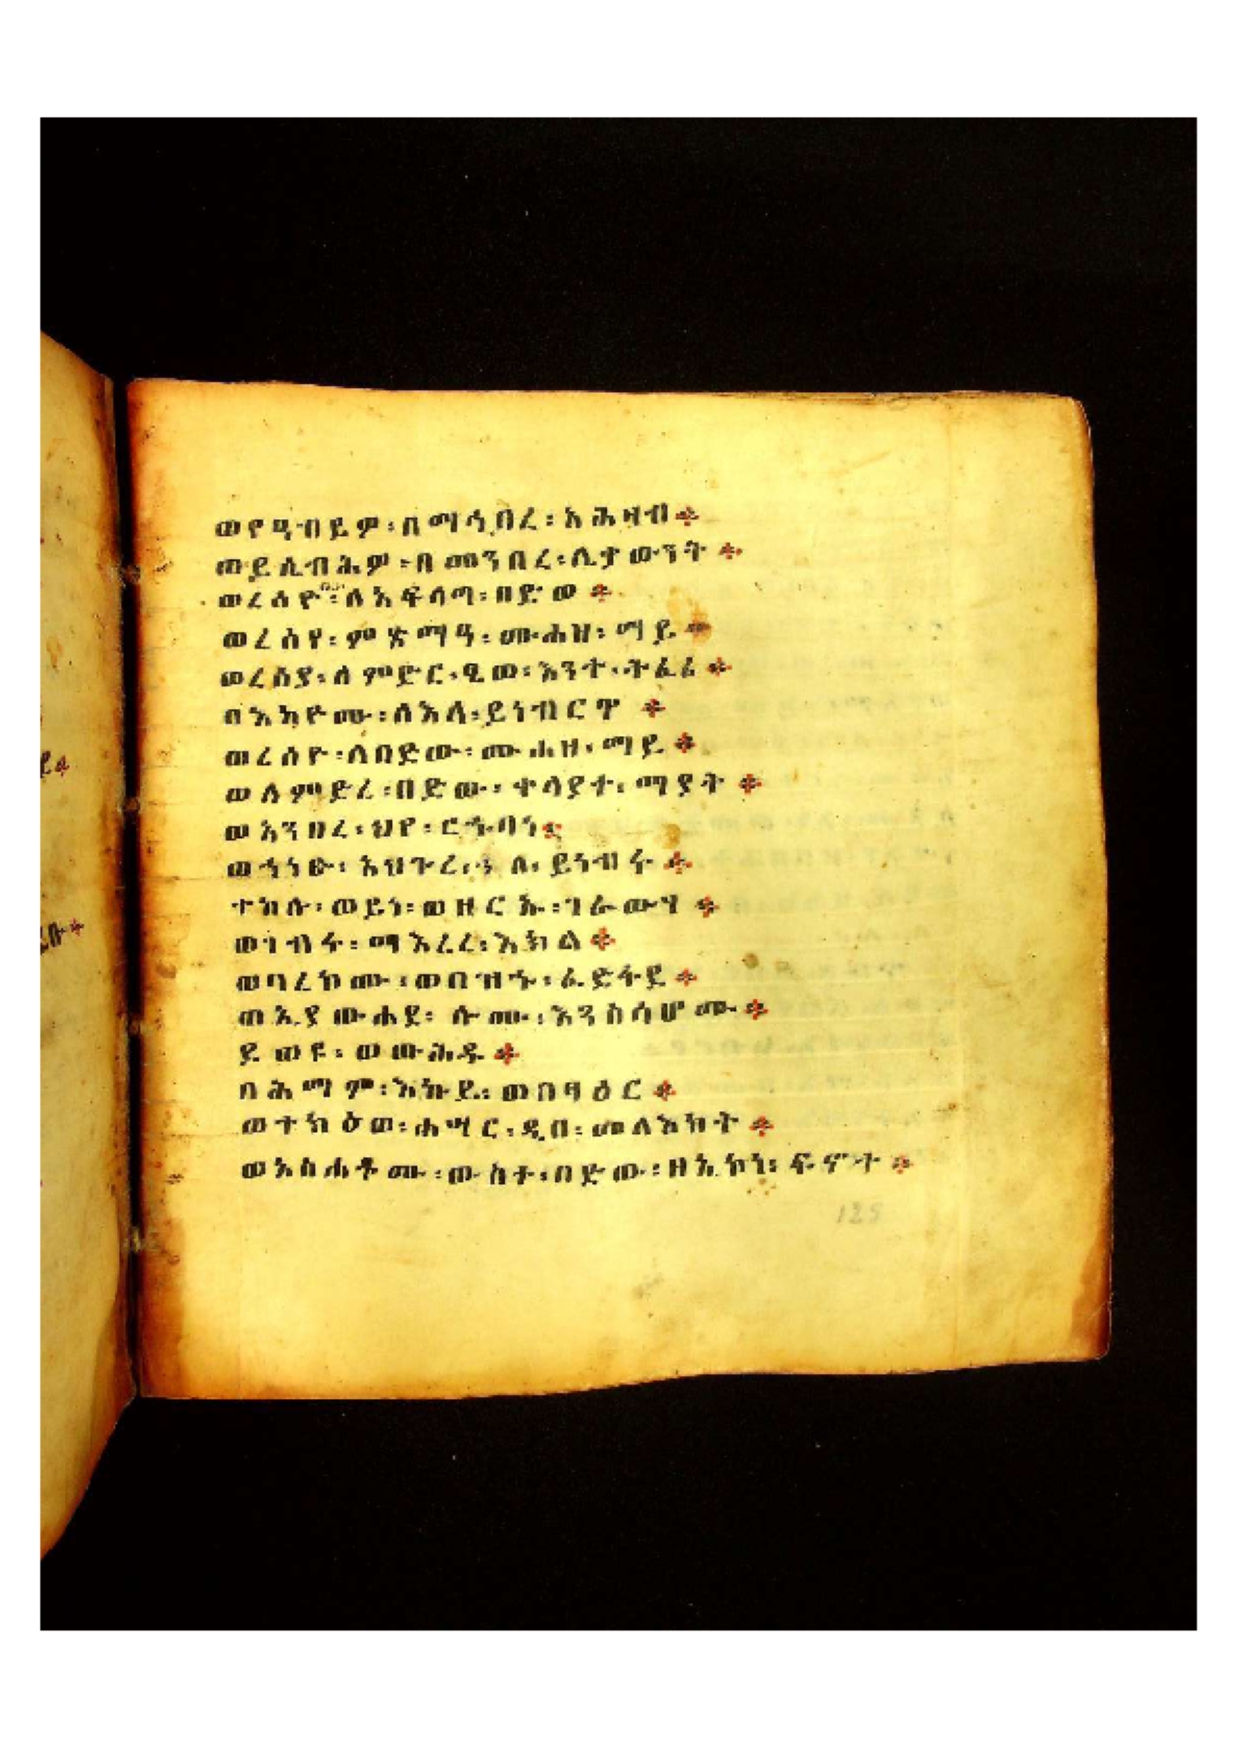 ወየዓብይዎ፡በማኅበረ፡አሕዛብ፨
ወይሴብሕዎ፡በመንበረ፡ሊቃውንት፨
ወረሰዮ፡ለአፍላግ፡በድወ፨
ወረሰየ፡ምጽማዓ፡ሙሐዘ፡ማይ፨
ወረሰያ፡ለምድር፡ጼው፡እንተ፡ትፈሪ፨
በእከዮሙ፡ለእለ፡ይነብርዋ፨
ወረሰዮ፡ለበድው፡ሙሐዘ፡ማይ፨
ወለምድረ፡በድው፡ተሳያተ፡ማያት፨
ወአንበረ፡ህየ፡ርኁባነ፨
ወኀነፁ፡አህጉረ፡ኀለ፡ይነብሩ፨
ተከሉ፡ወይነ፡ወዘርኡ፡ገራውህ፨
ወገብሩ፡ማእረረ፡እክል፨
ወባረኮሙ፡ወበዝኁ፡ፈድፋደ፨
ወኢያውሐደ፡ሎሙ፡እንስሳሆሙ፨
ደወዩ፡ወውሕዱ፨
በሕማም፡እኩይ፡ወበፃዕር፨
ወተክዕወ፡ሐሣር፡ዲበ፡መላእክት፨
ወአስሐቶሙ፡ውስተ፡በድው፡ዘኢኮነ፡ፍኖት፨
125